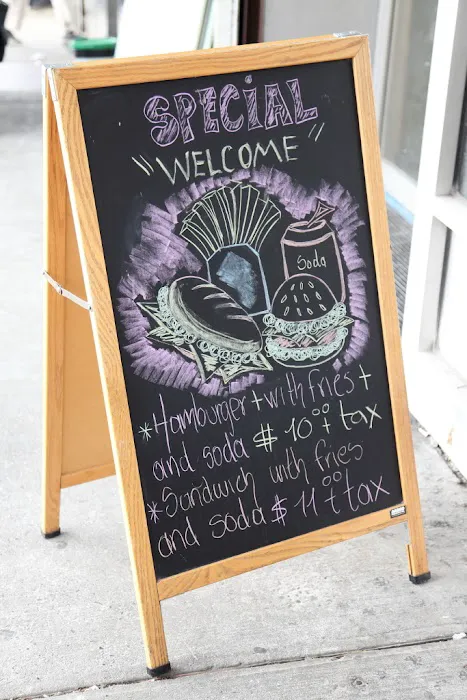 SPECIAL
"WELCOME"
Soda
*Hamburger + with fries +
and soda $ 10⁰⁰ + tax
*Sandwich with fries
and soda $ 11⁰⁰ + tax